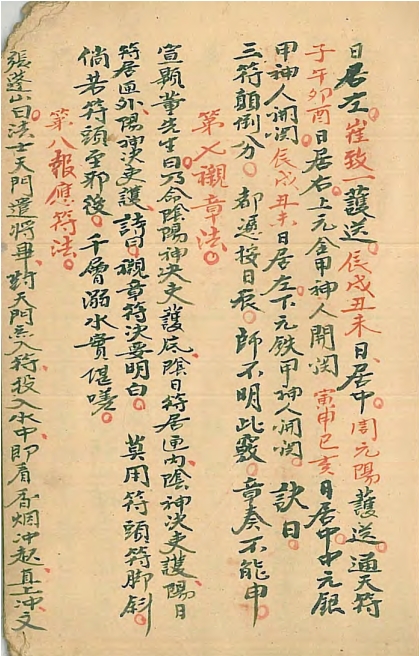 日居左崔致一護送辰戌丑未日居中周元陽護送通天符
子午卯酉日居右上元金甲神人開関寅申巳亥日居中中元銀
甲神人開関辰戌丑未日居左下元鉄甲神人開関訣曰
三符顛倒分都遁按日辰師不明此竅章奏不能申
第七襯章法
宣顕黄先生曰乃命陰陽神決吏護底陰日符居匣内陰神決吏護陽日
符居匣外陽神決吏護詩曰襯章符決要明白莫用符頭符脚斜
倘若符頭至邪後千層溺水實堪嗟
第八報應符法
張蓬山曰法士天門遣將畢對天門焚符投入水中即看香烟冲起直上冲文